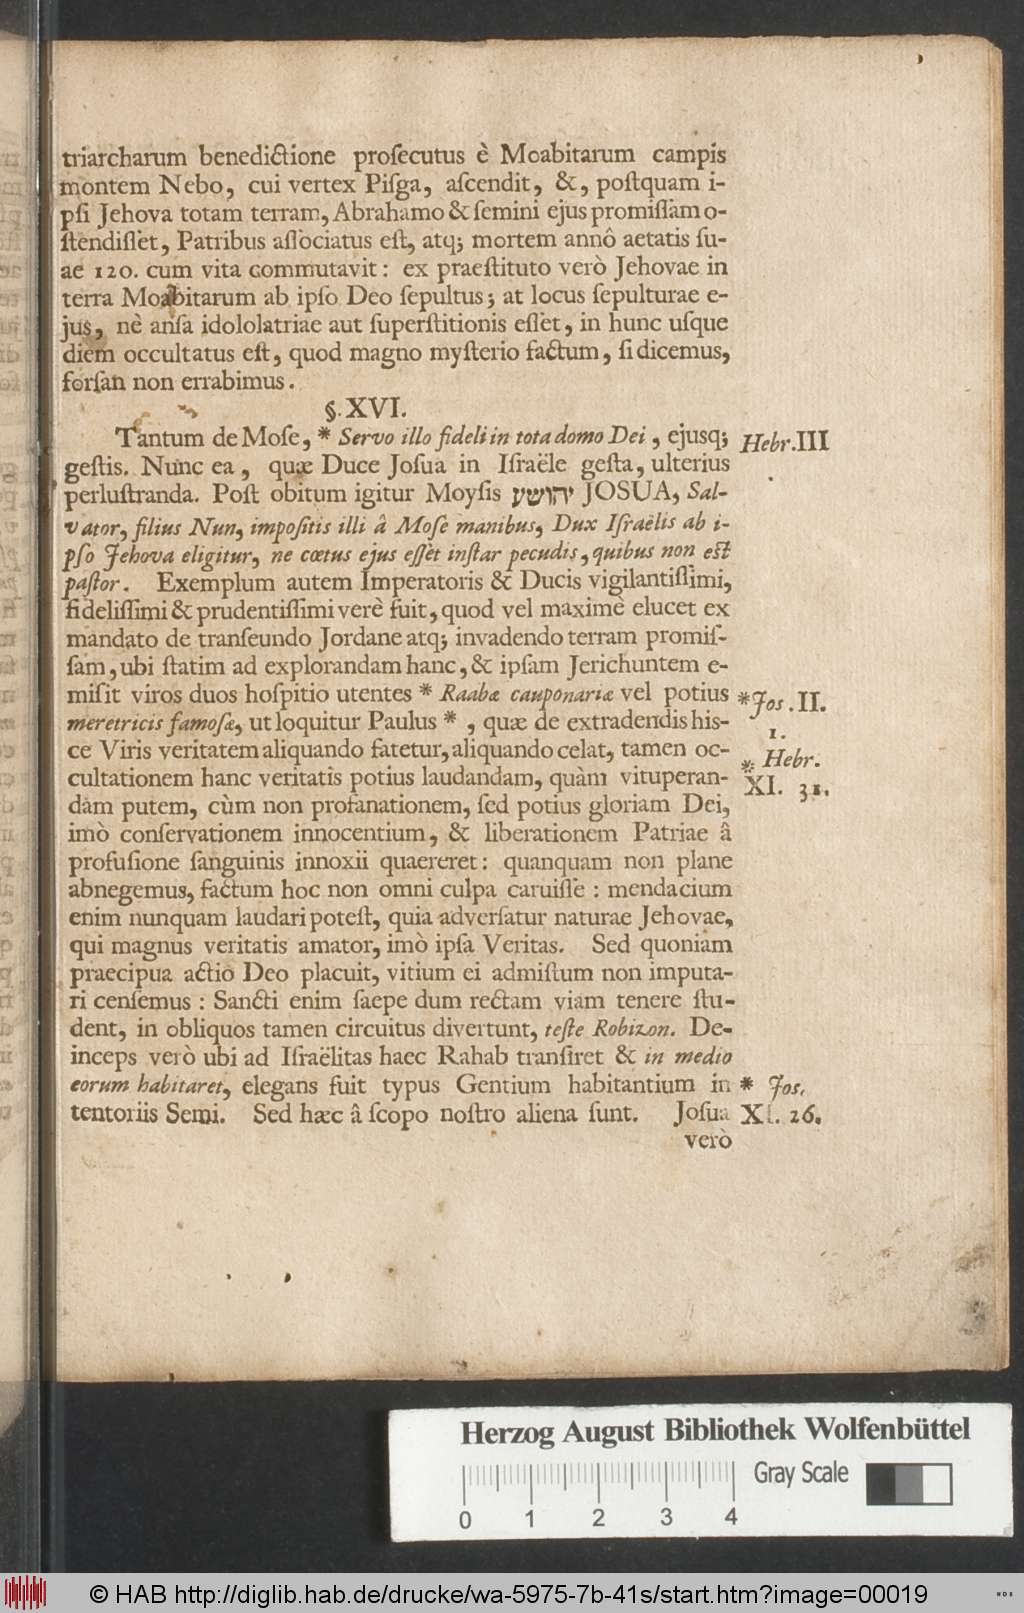 triarcharum benedictione proſecutus è Moabitarum campis
montem Nebo, cui vertex Piſga, aſcendit, &, poſtquam i-
pſi Jehova totam terram, Abrahamo & ſemini ejus promiſſam o-
ſtendiſſet, Patribus aſſociatus eſt, atq; mortem annô aetatis ſu-
ae 120. cum vita commutavit: ex praeſtituto verò Jehovae in
terra Moabitarum ab ipſo Deo ſepultus; at locus ſepulturae e-
jus, nè anſa idololatriae aut ſuperſtitionis eſſet, in hunc uſque
diem occultatus eſt, quod magno myſterio factum, ſi dicemus,
forſan non errabimus.
§. XVI.
Tantum de Moſe, * Servo illo fideli in tota domo Dei, ejusq;
Hebr. III
geſtis. Nunc ea, quæ Duce Joſua in Iſraële geſta, ulterius
perluſtranda. Poſt obitum igitur Moyſis יהושע JOSUA, Sal-
vator, filius Nun, impoſitis illi â Moſe manibus, Dux Iſraëlis ab i-
pſo Jehova eligitur, ne cœtus ejus eſſet inſtar pecudis, quibus non eſt
paſtor. Exemplum autem Imperatoris & Ducis vigilantiſſimi,
fideliſſimi & prudentiſſimi verè fuit, quod vel maximè elucet ex
mandato de tranſeundo Jordane atq; invadendo terram promiſ-
ſam, ubi ſtatim ad explorandam hanc, & ipſam Jerichuntem e-
miſit viros duos hoſpitio utentes * Raabæ cauponariæ vel potius
*Joſ. II.
1.
meretricis famoſæ, ut loquitur Paulus *, quæ de extradendis his-
ce Viris veritatem aliquando fatetur, aliquando celat, tamen oc-
* Hebr.
XI. 31.
cultationem hanc veritatis potius laudandam, quàm vituperan-
dam putem, cùm non profanationem, ſed potius gloriam Dei,
imò conſervationem innocentium, & liberationem Patriae â
profuſione ſanguinis innoxii quaereret: quanquam non plane
abnegemus, factum hoc non omni culpa caruiſſe: mendacium
enim nunquam laudari poteſt, quia adverſatur naturae Jehovae,
qui magnus veritatis amator, imò ipſa Veritas. Sed quoniam
praecipua actio Deo placuit, vitium ei admiſtum non imputa-
ri cenſemus: Sancti enim ſaepe dum rectam viam tenere ſtu-
dent, in obliquos tamen circuitus divertunt, teſte Robizon. De-
inceps verò ubi ad Iſraëlitas haec Rahab tranſiret & in medio
eorum habitaret, elegans fuit typus Gentium habitantium in
* Joſ.
XI. 26.
tentoriis Semi. Sed hæc â ſcopo noſtro aliena ſunt. Joſua
verò
Herzog August Bibliothek Wolfenbüttel
Gray Scale
0 1 2 3 4
© HAB http://diglib.hab.de/drucke/wa-5975-7b-41s/start.htm?image=00019